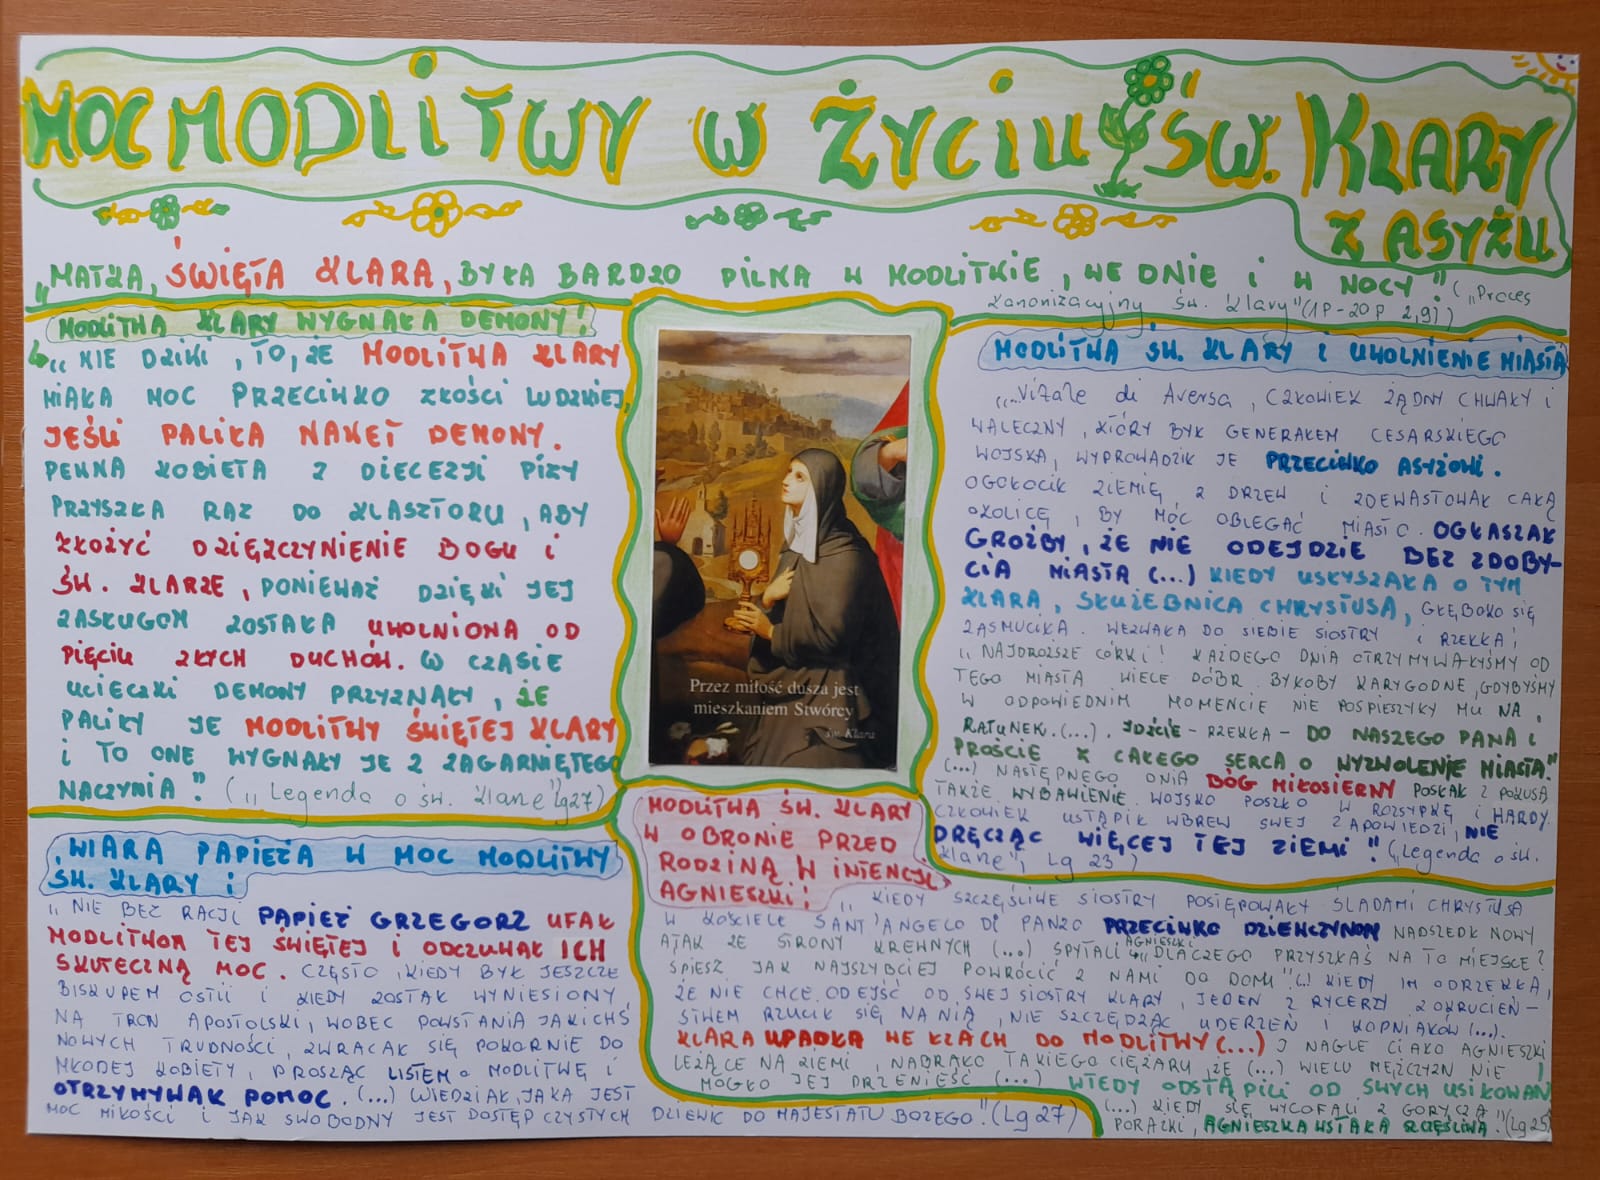 MOC MODLITWY W ŻYCIU ŚW. KLARY
Z ASYŻU
„MATKA, ŚWIĘTA KLARA, BYŁA BARDZO PILNA W MODLITWIE, WE DNIE I W NOCY" („Proces
Kanonizacyjny św. Klary" (1P-20P 2,9))
MODLITWA KLARY WYGNAŁA DEMONY!
„NIE DZIWI, TO, ŻE MODLITWA KLARY
MIAŁA MOC PRZECIWKO ZŁOŚCI LUDZKIEJ,
JEŚLI PALIŁA NAWET DEMONY.
PEWNA KOBIETA Z DIECEZJI PIZY
PRZYSZŁA RAZ DO KLASZTORU, ABY
ZŁOŻYĆ DZIĘKCZYNIENIE BOGU I
ŚW. KLARZE, PONIEWAŻ DZIĘKI JEJ
ZASŁUGOM ZOSTAŁA UWOLNIONA OD
PIĘCIU ZŁYCH DUCHÓW. W CZASIE
UCIECZKI DEMONY PRZYZNAŁY, ŻE
PALIŁY JE MODLITWY ŚWIĘTEJ KLARY
I TO ONE WYGNAŁY JE Z ZAGARNIĘTEGO
NACZYNIA." („Legenda o św. Klarze" Lg27)
WIARA PAPIEŻA W MOC MODLITWY
ŚW. KLARY!
„NIE BEZ RACJI PAPIEŻ GRZEGORZ UFAŁ
MODLITWOM TEJ ŚWIĘTEJ I ODCZUWAŁ ICH
SKUTECZNĄ MOC. CZĘSTO, KIEDY BYŁ JESZCZE
BISKUPEM OSTII I KIEDY ZOSTAŁ WYNIESIONY
NA TRON APOSTOLSKI, WOBEC POWSTANIA JAKICHŚ
NOWYCH TRUDNOŚCI, ZWRACAŁ SIĘ POKORNIE DO
MŁODEJ KOBIETY, PROSZĄC LISTEM o MODLITWĘ I
OTRZYMYWAŁ POMOC. (...) WIEDZIAŁ, JAKA JEST
MOC MIŁOŚCI I JAK SWOBODNY JEST DOSTĘP CZYSTYCH DZIEWIC DO MAJESTATU BOŻEGO." (Lg 27)
Przez miłość dusza jest
mieszkaniem Stwórcy
św. Klara
MODLITWA ŚW. KLARY I UWOLNIENIE MIASTA
„Vitale di Aversa, CZŁOWIEK ŻĄDNY CHWAŁY I
WALECZNY, KTÓRY BYŁ GENERAŁEM CESARSKIEGO
WOJSKA, WYPROWADZIŁ JE PRZECIWKO ASYŻOWI.
OGOŁOCIŁ ZIEMIĘ Z DRZEW I ZDEWASTOWAŁ CAŁĄ
OKOLICĘ, BY MÓC OBLEGAĆ MIASTO. OGŁASZAŁ
GROŹBY, ŻE NIE ODEJDZIE BEZ ZDOBY-
CIA MIASTA (...) KIEDY USŁYSZAŁA O TYM
KLARA, SŁUŻEBNICA CHRYSTUSA, GŁĘBOKO SIĘ
ZASMUCIŁA. WEZWAŁA DO SIEBIE SIOSTRY I RZEKŁA:
„NAJDROŻSZE CÓRKI! KAŻDEGO DNIA OTRZYMYWAŁYŚMY OD
TEGO MIASTA WIELE DÓBR. BYŁOBY KARYGODNE, GDYBYŚMY
W ODPOWIEDNIM MOMENCIE NIE POSPIESZYŁY MU NA
RATUNEK. (...). IDZCIE - RZEKŁA - DO NASZEGO PANA I
PROŚCIE Z CAŁEGO SERCA O WYZWOLENIE MIASTA."
(...) NASTĘPNEGO DNIA BÓG MIŁOSIERNY POSŁAŁ Z POKUSĄ
TAKŻE WYBAWIENIE. WOJSKO POSZŁO W ROZSYPKĘ I HARDY
CZŁOWIEK USTĄPIŁ WBREW SWEJ ZAPOWIEDZI, NIE
DRĘCZĄC WIĘCEJ TEJ ZIEMI." („Legenda o św.
Klarze", Lg 23)
MODLITWA ŚW. KLARY
W OBRONIE PRZED
RODZINĄ W INTENCJI
AGNIESZKI!
„KIEDY SZCZĘŚLIWE SIOSTRY POSTĘPOWAŁY ŚLADAMI CHRYSTUSA
W KOŚCIELE SANT'ANGELO DI PANZO PRZECIWKO DZIEWCZYNOM NADSZEDŁ NOWY
ATAK ZE STRONY KREWNYCH (...) SPYTALI AGNIESZKI „DLACZEGO PRZYSZŁAŚ NA TO MIEJSCE?
ŚPIESZ JAK NAJSZYBCIEJ POWRÓCIĆ Z NAMI DO DOMU" (..) KIEDY IM ODRZEKŁA,
ŻE NIE CHCE ODEJŚĆ OD SWEJ SIOSTRY KLARY, JEDEN Z RYCERZY Z OKRUCIEŃ-
STWEM RZUCIŁ SIĘ NA NIĄ, NIE SZCZĘDZĄC UDERZEŃ I KOPNIAKÓW (...).
KLARA UPADŁA WE ŁZACH DO MODLITWY (...) I NAGLE CIAŁO AGNIESZKI
LEŻĄCE NA ZIEMI, NABRAŁO TAKIEGO CIĘŻARU, ŻE (...) WIELU MĘŻCZYZN NIE
MOGŁO JEJ PRZENIEŚĆ (...) WTEDY ODSTĄPILI OD SWYCH USIŁOWAŃ
(...) KIEDY SIĘ WYCOFALI Z GORYCZĄ
PORAŻKI, AGNIESZKA WSTAŁA SZCZĘŚLIWA." (Lg 25)